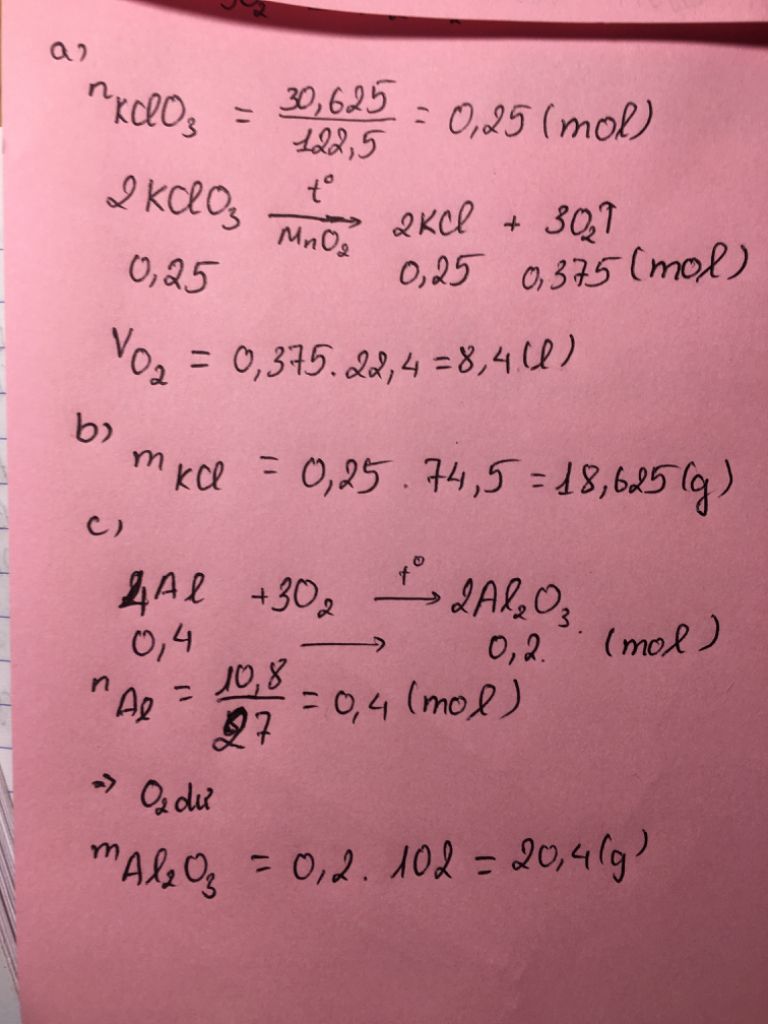 a)
nKClO3 = 30,625/122,5 = 0,25 (mol)
2KClO3 t° → MnO2 2KCl + 3O2↑
0,25 0,25 0,375 (mol)
VO2 = 0,375.22,4 = 8,4 (l)
b)
mKCl = 0,25 . 74,5 = 18,625 (g)
c)
4Al + 3O2 t° → 2Al2O3
0,4 → 0,2. (mol)
nAl = 10,8/27 = 0,4 (mol)
⇒ O2 dư
mAl2O3 = 0,2. 102 = 20,4 (g)